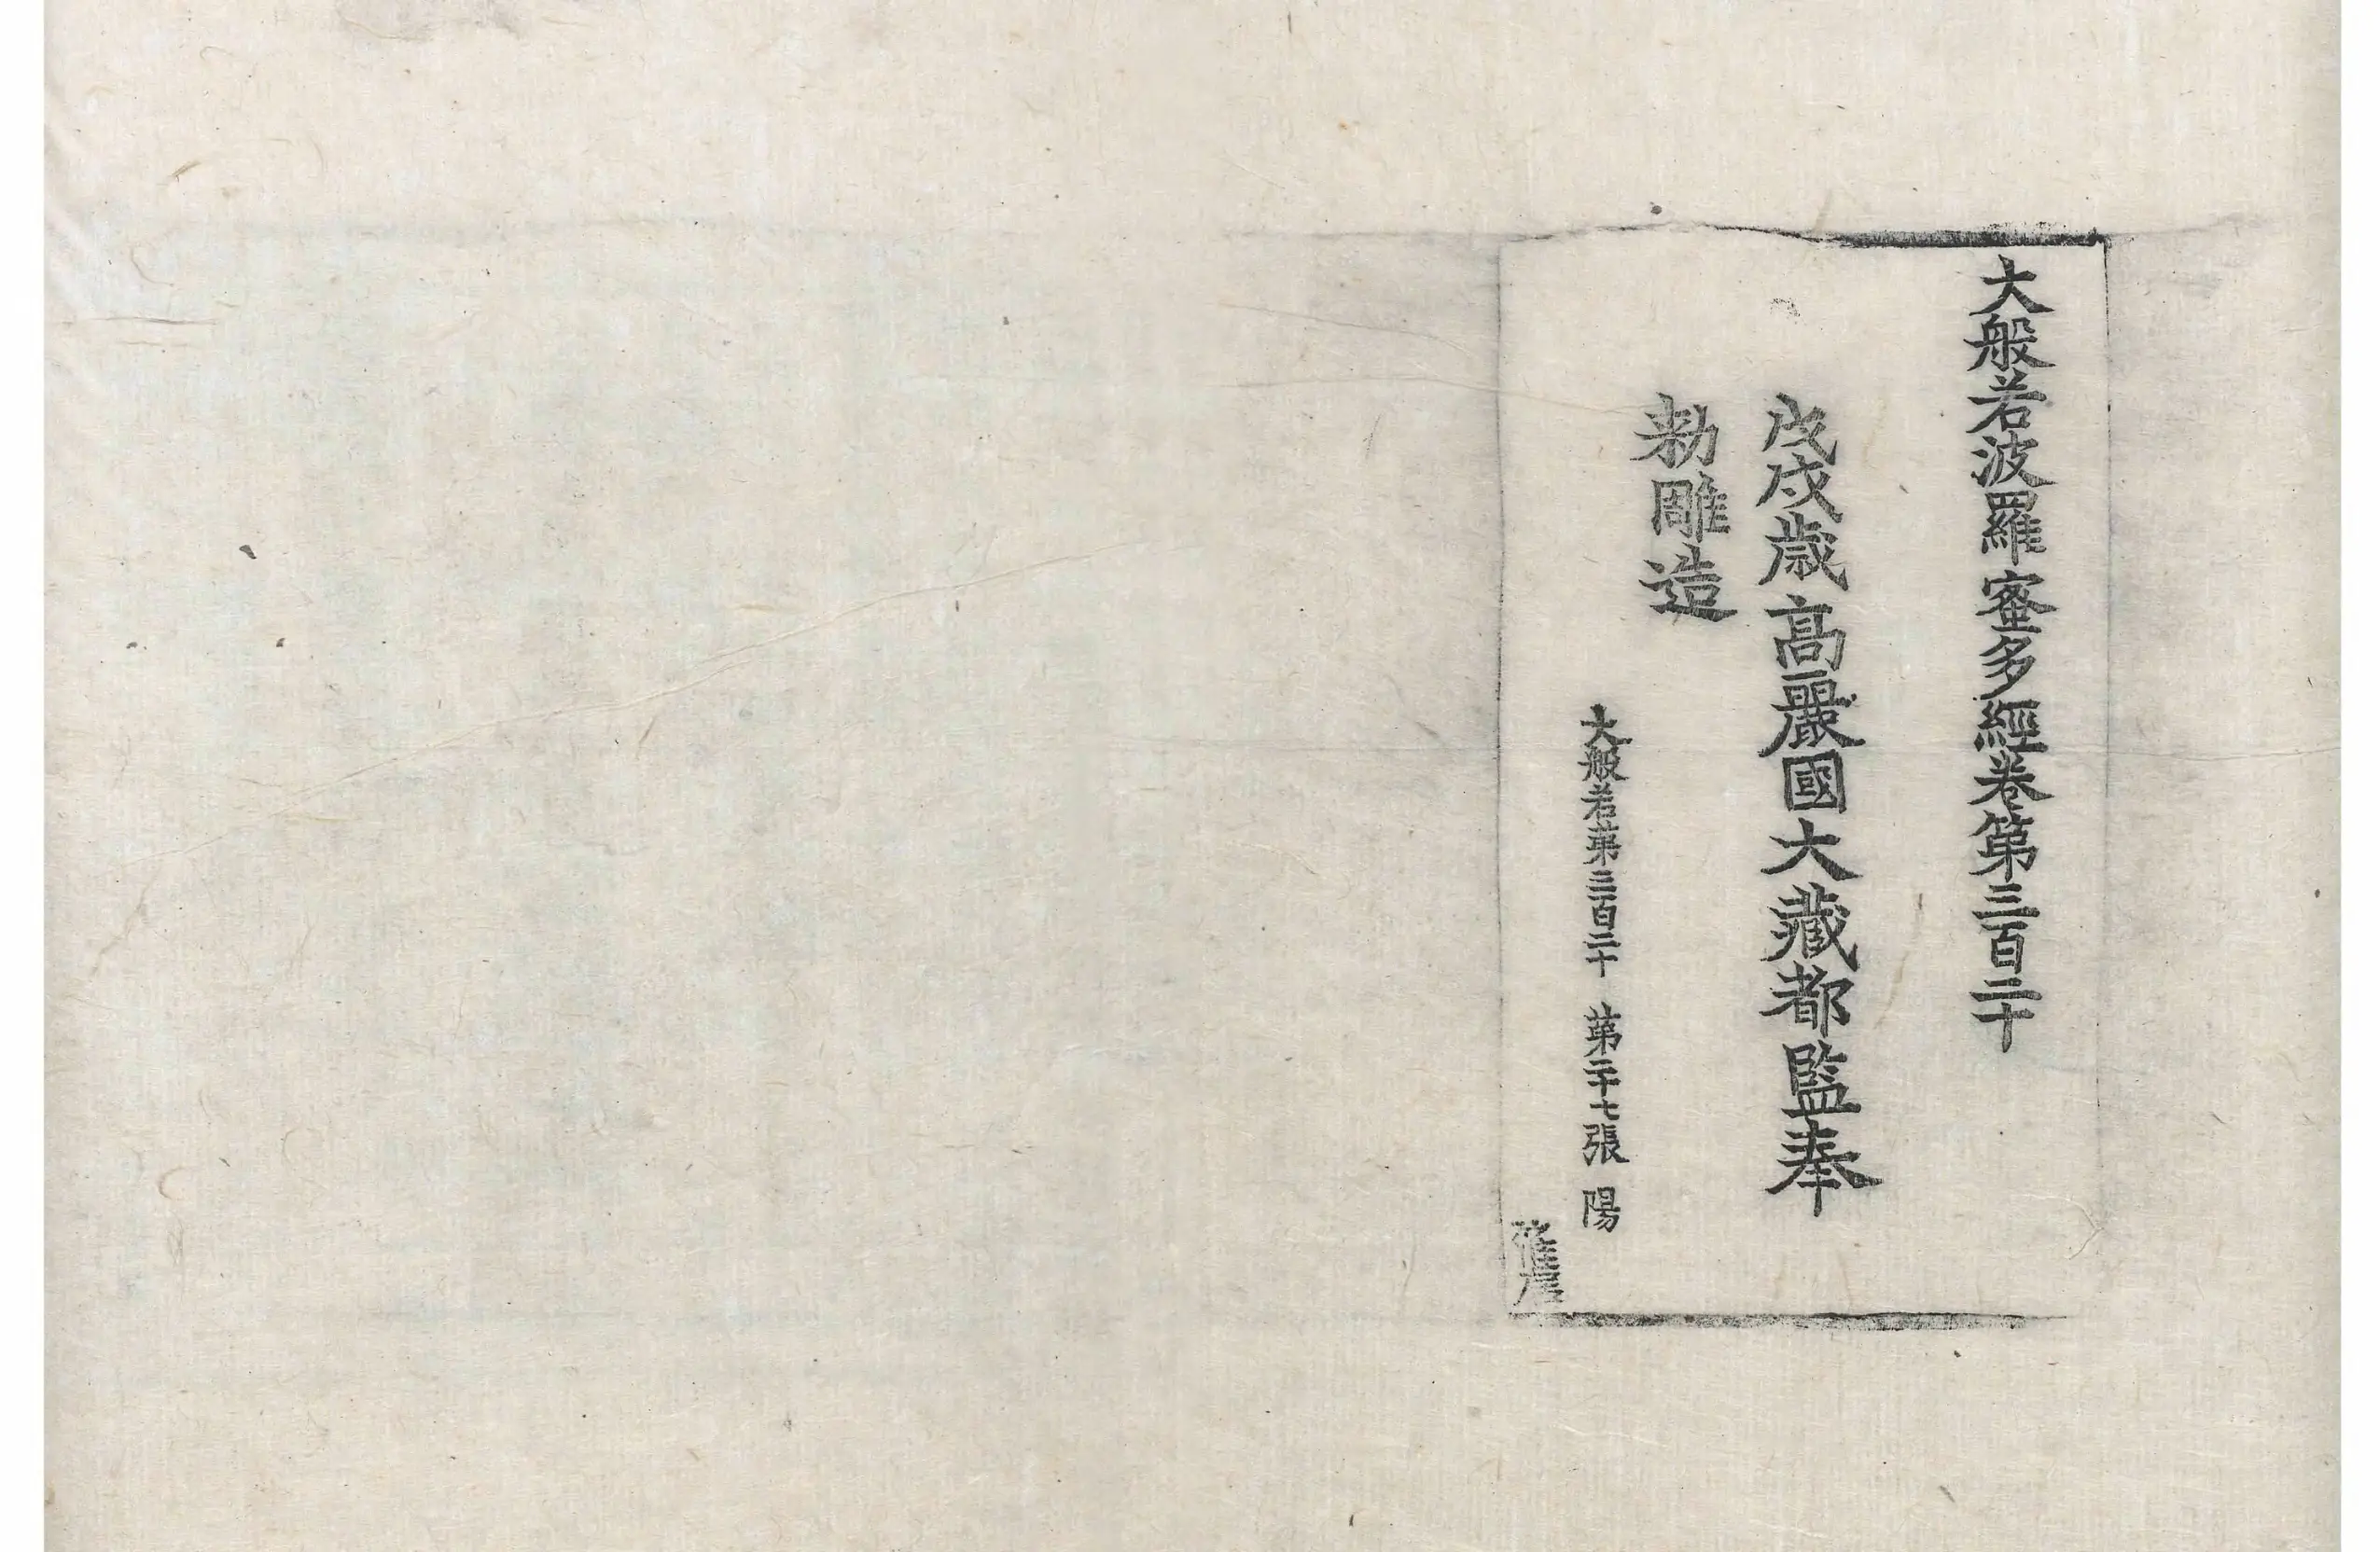 大般若波羅蜜多經卷第三百二十
戊戌歲高麗國大藏都監奉
勅雕造
大般若第三百二十 第二十七張 陽